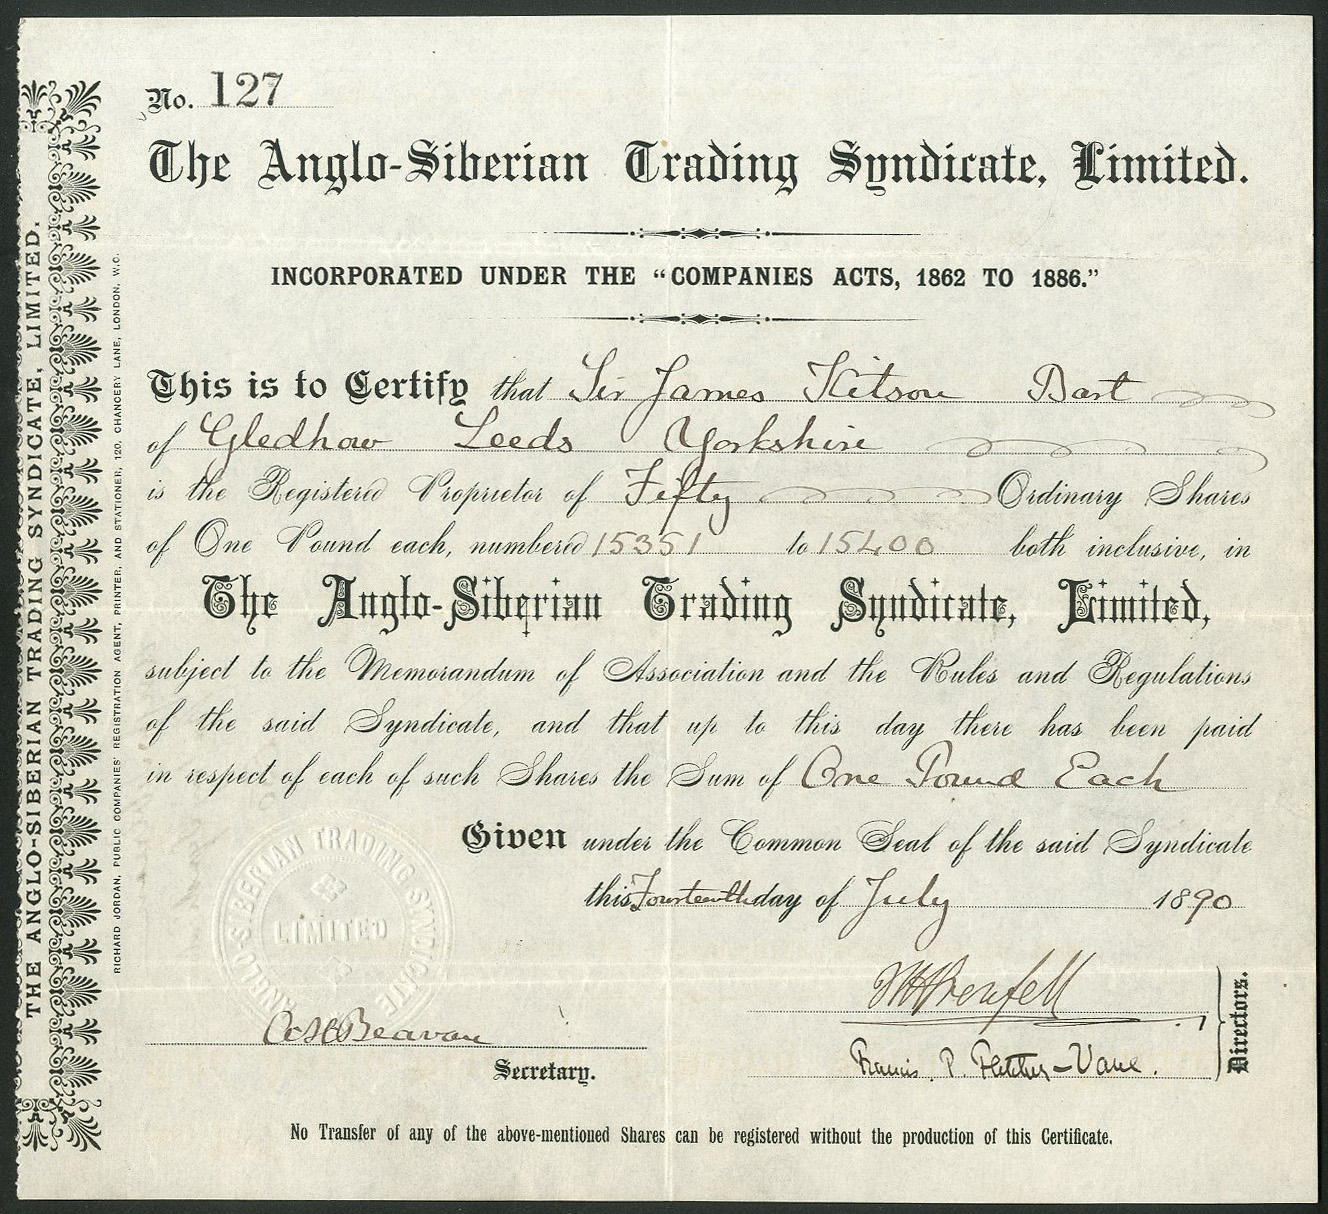 No. 127
The Anglo-Siberian Trading Syndicate, Limited.
INCORPORATED UNDER THE "COMPANIES ACTS, 1862 TO 1886."
This is to Certify that Sir James Kitson Bart
of Gledhow Leeds Yorkshire
is the Registered Proprietor of Fifty Ordinary Shares
of One Pound each, numbered 15351 to 15400 both inclusive, in
The Anglo-Siberian Trading Syndicate, Limited,
subject to the Memorandum of Association and the Rules and Regulations
of the said Syndicate, and that up to this day there has been paid
in respect of each of such Shares the Sum of One Pound Each
Given under the Common Seal of the said Syndicate
this Fourteenth day of July 1890
ANGLO-SIBERIAN TRADING SYNDICATE
LIMITED
Beavan
Secretary.
Grenfell
Francis. P. Fletcher-Vane.
Directors.
No Transfer of any of the above-mentioned Shares can be registered without the production of this Certificate.
THE ANGLO-SIBERIAN TRADING SYNDICATE, LIMITED.
RICHARD JORDAN, PUBLIC COMPANIES' REGISTRATION AGENT, PRINTER, AND STATIONER, 120, CHANCERY LANE, LONDON, W.C.